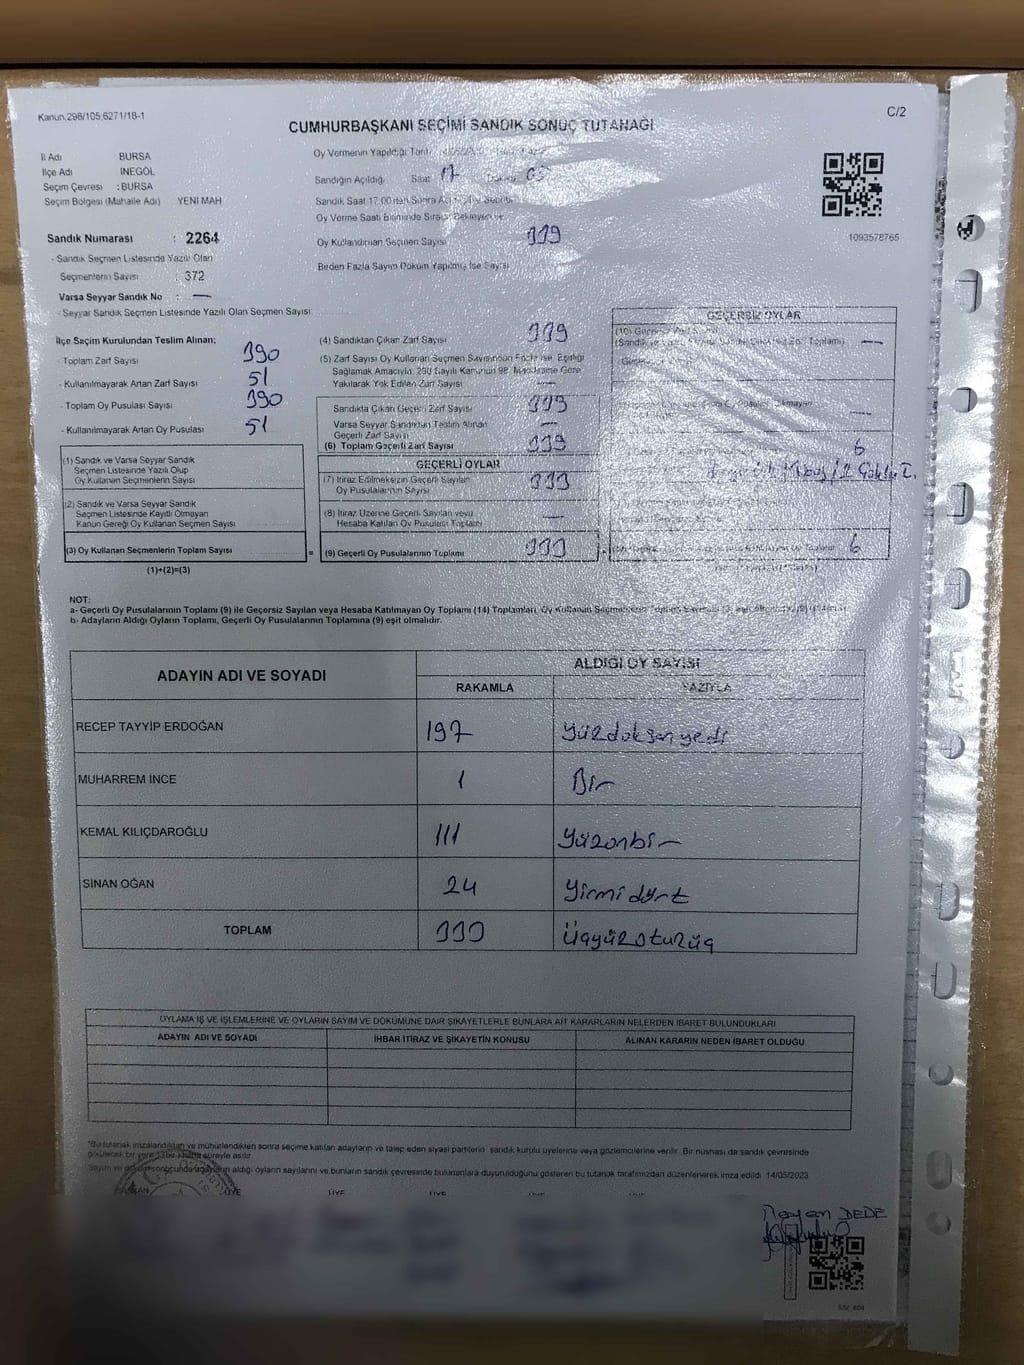 Kanun.298/105,6271/18-1
C/2
CUMHURBAŞKANI SEÇİMİ SANDIK SONUÇ TUTANAĞI
İl Adı BURSA
İlçe Adı İNEGÖL
Seçim Çevresi : BURSA
Seçim Bölgesi (Mahalle Adı) YENİ MAH
Sandık Numarası : 2264
- Sandık Seçmen Listesinde Yazılı Olan
Seçmenlerin Sayısı : 372
Varsa Seyyar Sandık No : —
- Seyyar Sandık Seçmen Listesinde Yazılı Olan Seçmen Sayısı
Oy Vermenin Yapıldığı
Sandığın Açıldığı Saat 17
Sandık Saat 17.00'den Sonra
Oy Verme Saati Bitiminde Sırada Bekleyen
Oy Kullandırılan Seçmen Sayısı 339
Birden Fazla Sayım Döküm Yapılmış İse Sayısı
1093578765
İlçe Seçim Kurulundan Teslim Alınan;
Toplam Zarf Sayısı 390
- Kullanılmayarak Artan Zarf Sayısı 51
- Toplam Oy Pusulası Sayısı 390
- Kullanılmayarak Artan Oy Pusulası 51
(1) Sandık ve Varsa Seyyar Sandık
Seçmen Listesinde Yazılı Olup
Oy Kullanan Seçmenlerin Sayısı
(2) Sandık ve Varsa Seyyar Sandık
Seçmen Listesinde Kayıtlı Olmayan
Kanun Gereği Oy Kullanan Seçmen Sayısı
(3) Oy Kullanan Seçmenlerin Toplam Sayısı
(1)+(2)=(3)
(4) Sandıktan Çıkan Zarf Sayısı 339
(5) Zarf Sayısı Oy Kullanan Seçmen Sayısından Fazla ise, Eşitliği
Sağlamak Amacıyla, 298 Sayılı Kanunun 98. Maddesine Göre
Yakılarak Yok Edilen Zarf Sayısı —
Sandıkta Çıkan Geçerli Zarf Sayısı 339
Varsa Seyyar Sandıktan Teslim Alınan
Geçerli Zarf Sayısı —
(6) Toplam Geçerli Zarf Sayısı 339
GEÇERLİ OYLAR
(7) İtiraz Edilmeksizin Geçerli Sayılan
Oy Pusulalarının Sayısı 333
(8) İtiraz Üzerine Geçerli Sayılan veya
Hesaba Katılan Oy Pusulası Toplamı —
= (9) Geçerli Oy Pusulalarının Toplamı 333
GEÇERSİZ OYLAR
—
—
6
6
NOT:
a- Geçerli Oy Pusulalarının Toplamı (9) ile Geçersiz Sayılan veya Hesaba Katılmayan Oy Toplamı (14) Toplamları, Oy Kullanan Seçmenlerin
b- Adayların Aldığı Oyların Toplamı, Geçerli Oy Pusulalarının Toplamına (9) eşit olmalıdır.
ADAYIN ADI VE SOYADI
ALDIĞI OY SAYISI
RAKAMLA YAZIYLA
RECEP TAYYİP ERDOĞAN 197 Yüzdoksanyedi
MUHARREM İNCE 1 Bir
KEMAL KILIÇDAROĞLU 111 Yüzonbir
SİNAN OĞAN 24 Yirmidört
TOPLAM 333 Üçyüzotuzüç
OYLAMA İŞ VE İŞLEMLERİNE VE OYLARIN SAYIM VE DÖKÜMÜNE DAİR ŞİKAYETLERLE BUNLARA AİT KARARLARIN NELERDEN İBARET BULUNDUKLARI
ADAYIN ADI VE SOYADI
İHBAR İTİRAZ VE ŞİKAYETİN KONUSU
ALINAN KARARIN NEDEN İBARET OLDUĞU
*Bu tutanak imzalandıktan ve mühürlendikten sonra seçime katılan adayların ve talep eden siyasi partilerin sandık kurulu üyelerine veya gözlemcilerine verilir. Bir nüshası da sandık çevresinde
aldığı oyların sayılarını ve bunların sandık çevresinde bulunanlara duyurulduğunu gösteren bu tutanak tarafımızdan düzenlenerek imza edildi. 14/05/2023
BAŞKAN ÜYE ÜYE ÜYE
DEDE